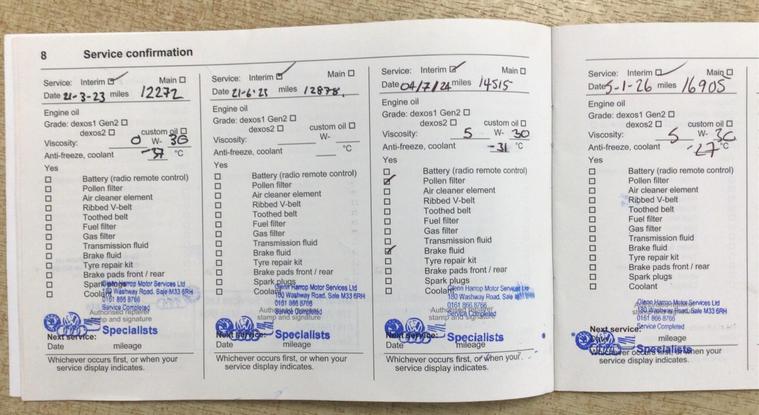 8 Service confirmation
Service: Interim Main
Date 21-3-23 miles 12272
Engine oil
Grade: dexos1 Gen2
dexos2 custom oil
Viscosity: 0 W- 30
Anti-freeze, coolant -37 °C
Yes
Battery (radio remote control)
Pollen filter
Air cleaner element
Ribbed V-belt
Toothed belt
Fuel filter
Gas filter
Transmission fluid
Brake fluid
Tyre repair kit
Brake pads front / rear
Spark plugs
Coolant
Glenn Harrop Motor Services Ltd
180 Washway Road, Sale M33 6RH
0161 865 8766
Service Completed
Authorised repairer
stamp and signature
Specialists
Next service:
Date mileage
Whichever occurs first, or when your
service display indicates.
Service: Interim Main
Date 21-6-23 miles 12878
Engine oil
Grade: dexos1 Gen2
dexos2 custom oil
Viscosity: W-
Anti-freeze, coolant °C
Yes
Battery (radio remote control)
Pollen filter
Air cleaner element
Ribbed V-belt
Toothed belt
Fuel filter
Gas filter
Transmission fluid
Brake fluid
Tyre repair kit
Brake pads front / rear
Spark plugs
Coolant
Glenn Harrop Motor Services Ltd
180 Washway Road, Sale M33 6RH
0161 865 8766
Service Completed
stamp and signature
Specialists
Next service:
Date mileage
Whichever occurs first, or when your
service display indicates.
Service: Interim Main
Date 04/7/24 miles 14515
Engine oil
Grade: dexos1 Gen2
dexos2 custom oil
Viscosity: 5 W- 30
Anti-freeze, coolant -31 °C
Yes
Battery (radio remote control)
Pollen filter
Air cleaner element
Ribbed V-belt
Toothed belt
Fuel filter
Gas filter
Transmission fluid
Brake fluid
Tyre repair kit
Brake pads front / rear
Spark plugs
Coolant
Glenn Harrop Motor Services Ltd
180 Washway Road, Sale
0161 865 8766
Service Completed
stamp and signature
Specialists
Next service:
Date mileage
Whichever occurs first, or when your
service display indicates.
Service: Interim Main
Date 5-1-26 miles 16905
Engine oil
Grade: dexos1 Gen2
dexos2 custom oil
Viscosity: 5 W- 30
Anti-freeze, coolant -27 °C
Yes
Battery (radio remote control)
Pollen filter
Air cleaner element
Ribbed V-belt
Toothed belt
Fuel filter
Gas filter
Transmission fluid
Brake fluid
Tyre repair kit
Brake pads front / rear
Spark plugs
Coolant
Glenn Harrop Motor Services Ltd
180 Washway Road, Sale M33 6RH
0161 865 8766
Service Completed
Next service:
Specialists
Whichever occurs first, or when your
service display indicates.